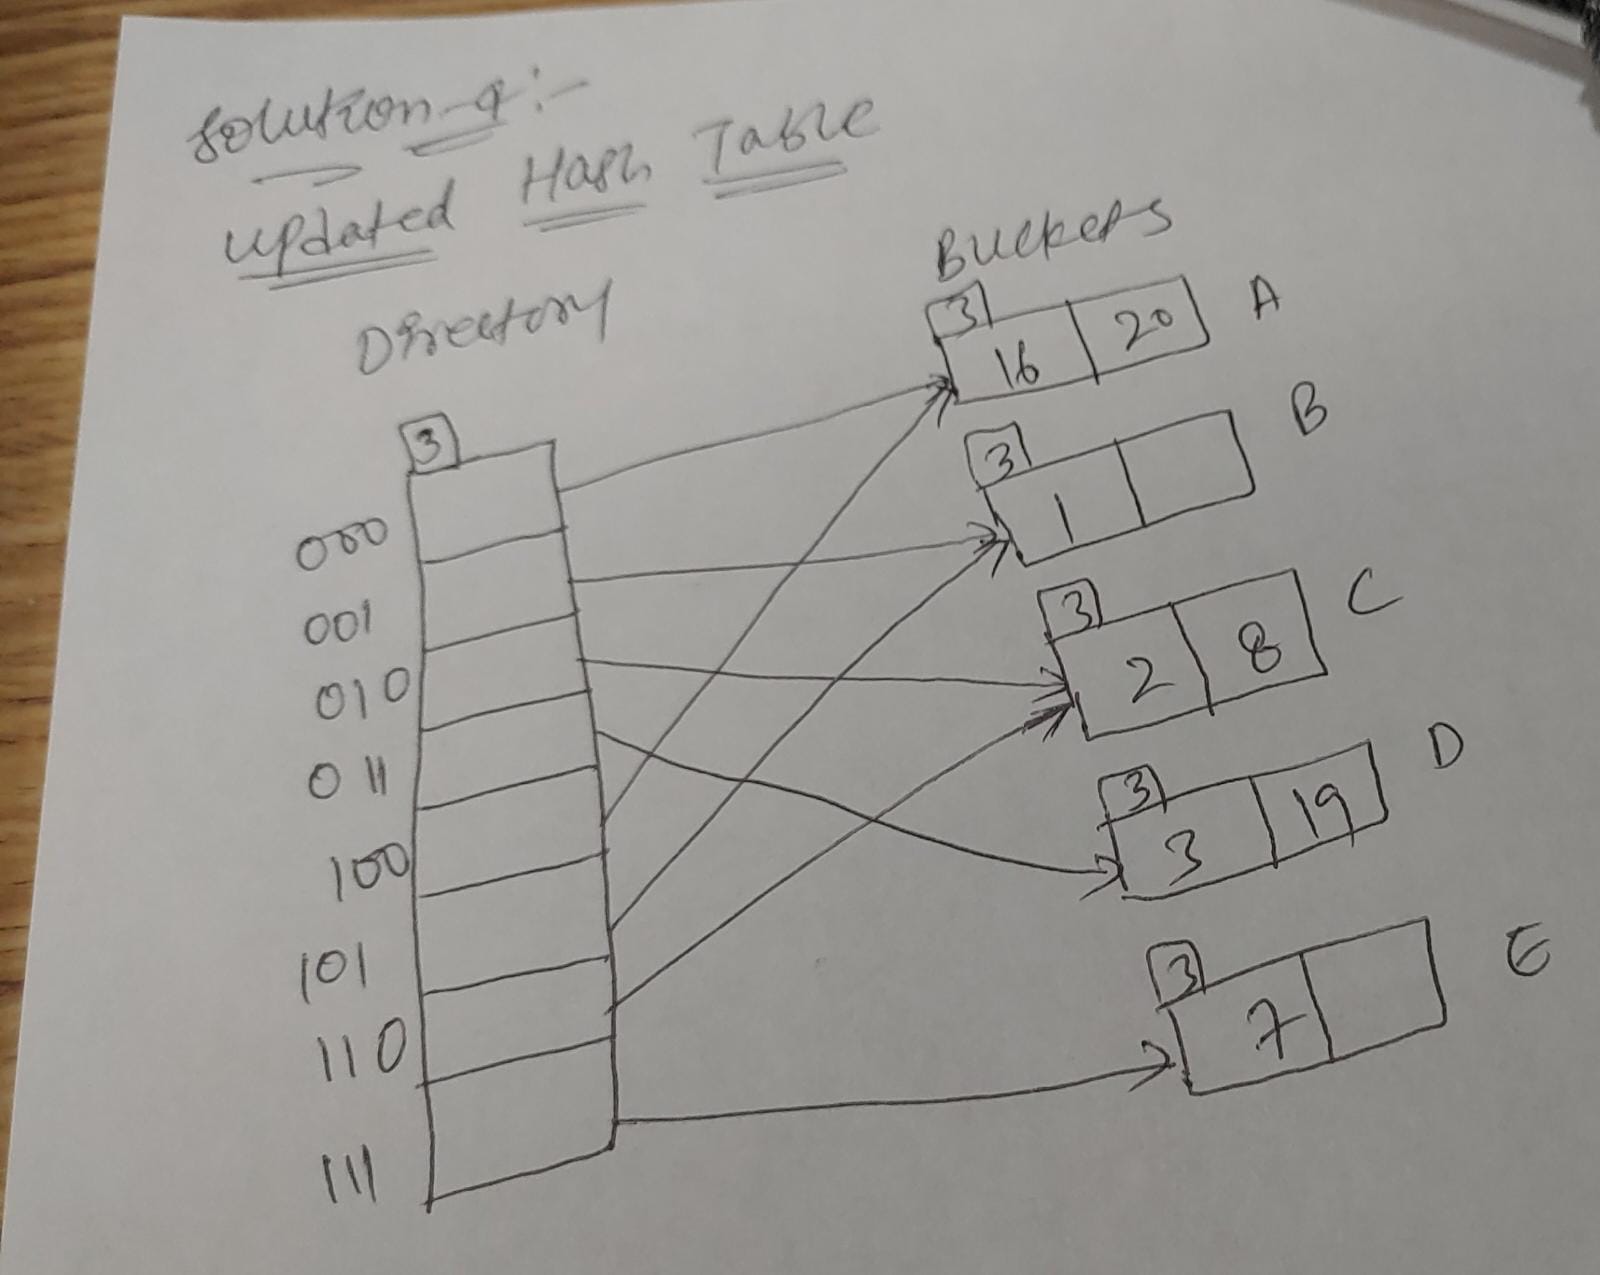 Solution-4:-
Updated Hash Table
Directory
Buckets
3
000
001
010
011
100
101
110
111
3
16 20 A
3
1 B
3
2 8 C
3
3 19 D
3
7 E